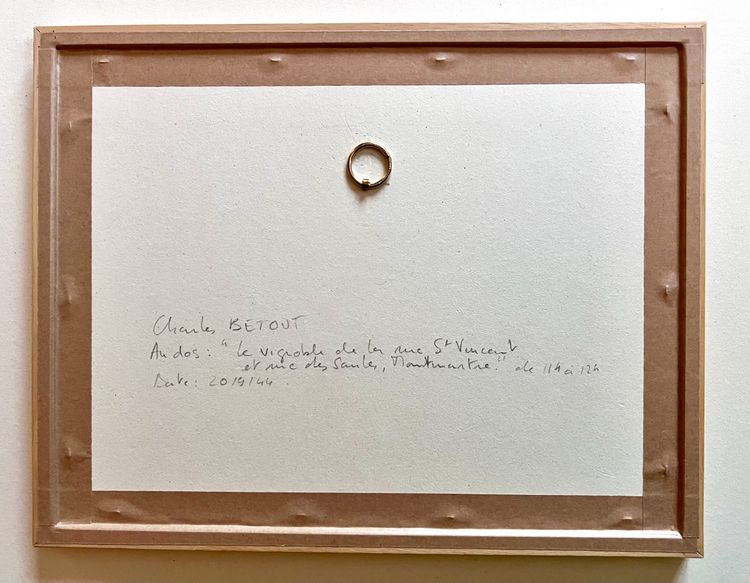 Charles BETOUT
Au dos : "Le vignoble de la rue St Vincent
et rue des Saules, Montmartre." de 11h à 12h
Date : 2019/44